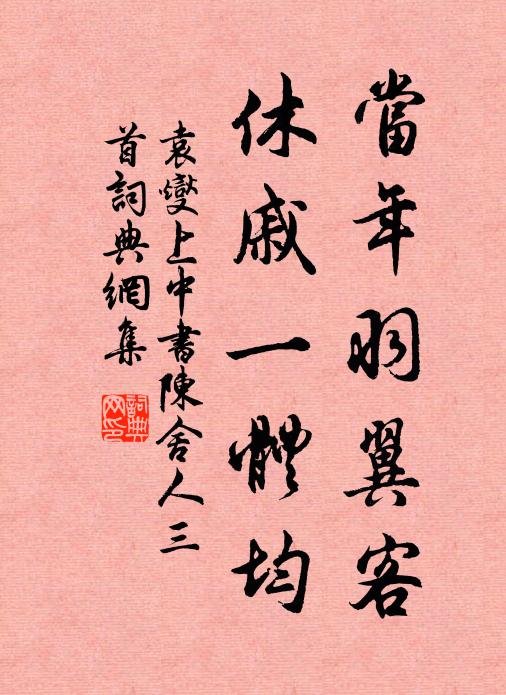 當年羽翼客
休戚一體均
袁燮上中書陳舍人三
首詞典網集
詞典网印